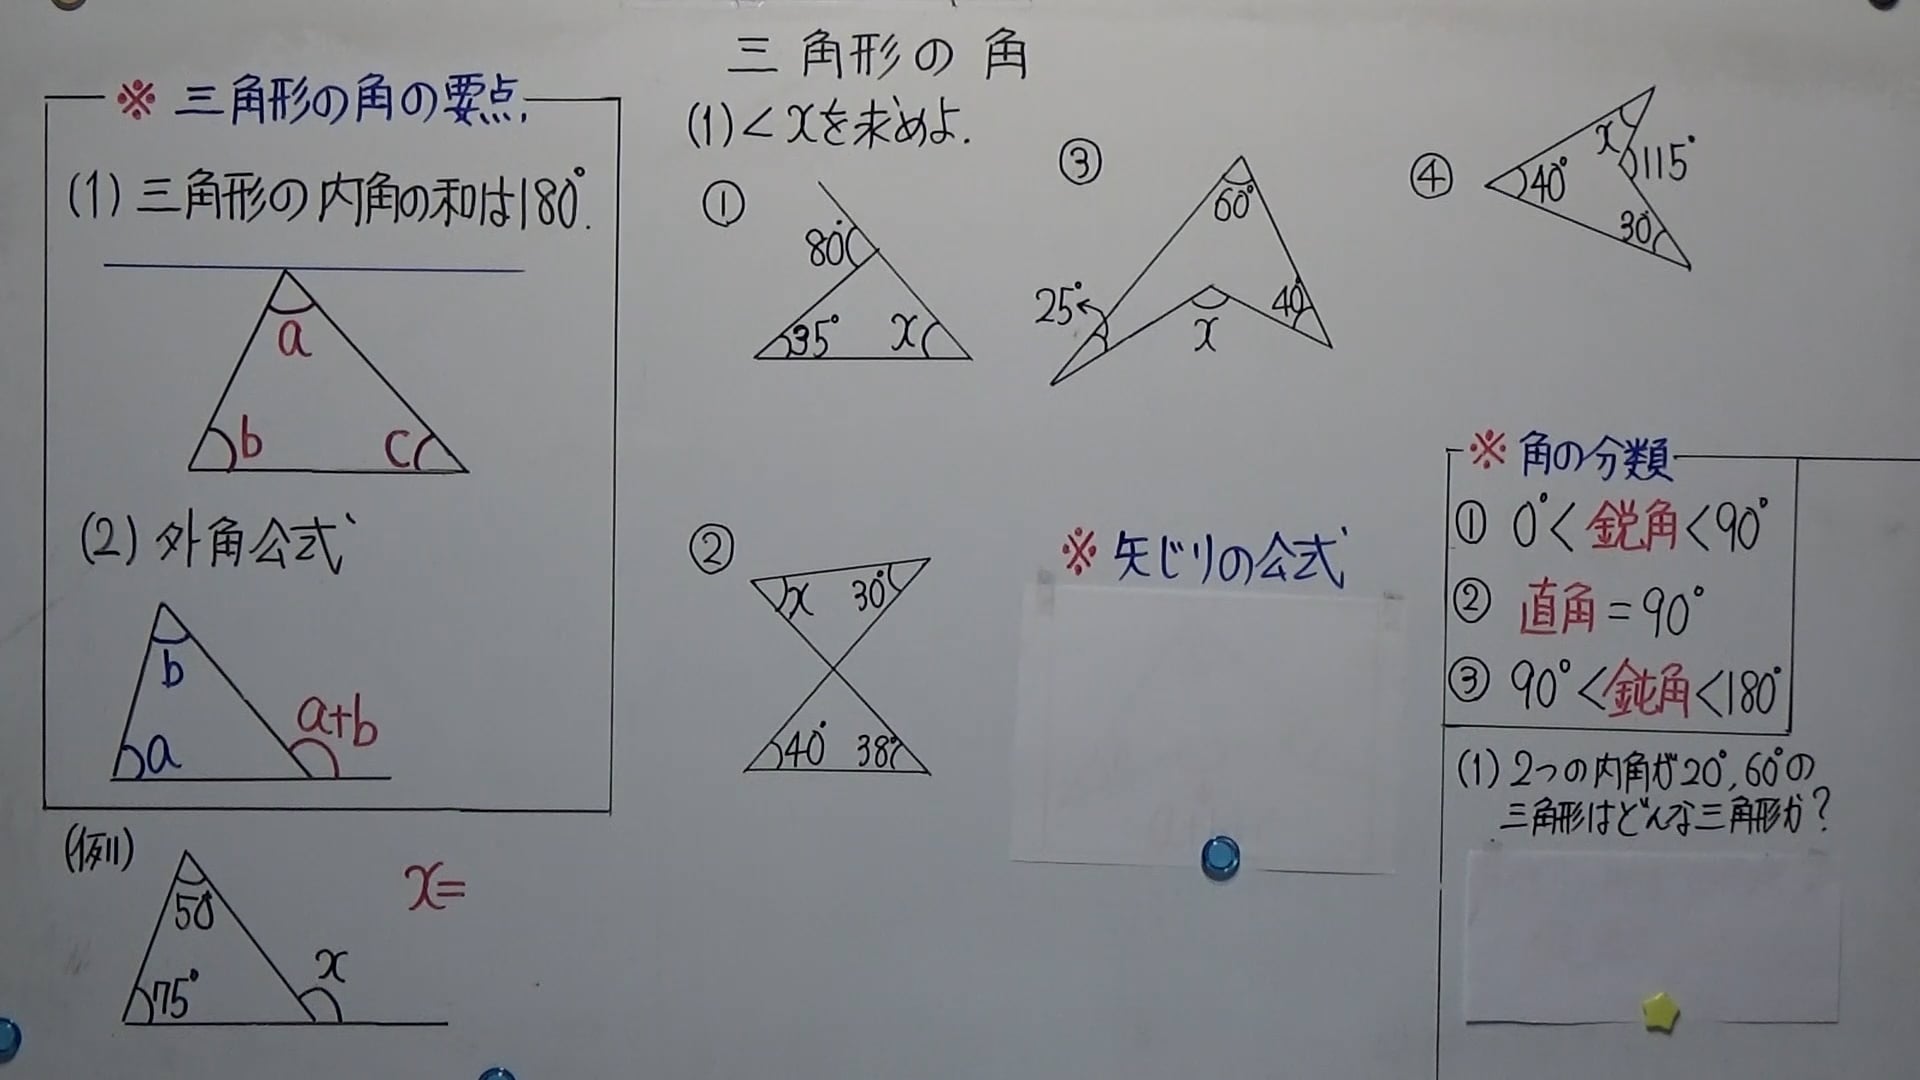 三角形の角
※三角形の角の要点
(1)三角形の内角の和は180°.
a
b
c
(2)外角公式
b
a
a+b
(例)
50°
75°
x
x=
(1)∠xを求めよ.
①
80°
35°
x
②
x
30°
40°
38°
③
60°
25°
40°
x
④
x
115°
40°
30°
※矢じりの公式
※角の分類
① 0°<鋭角<90°
② 直角=90°
③ 90°<鈍角<180°
(1)2つの内角が20°,60°の
三角形はどんな三角形か?